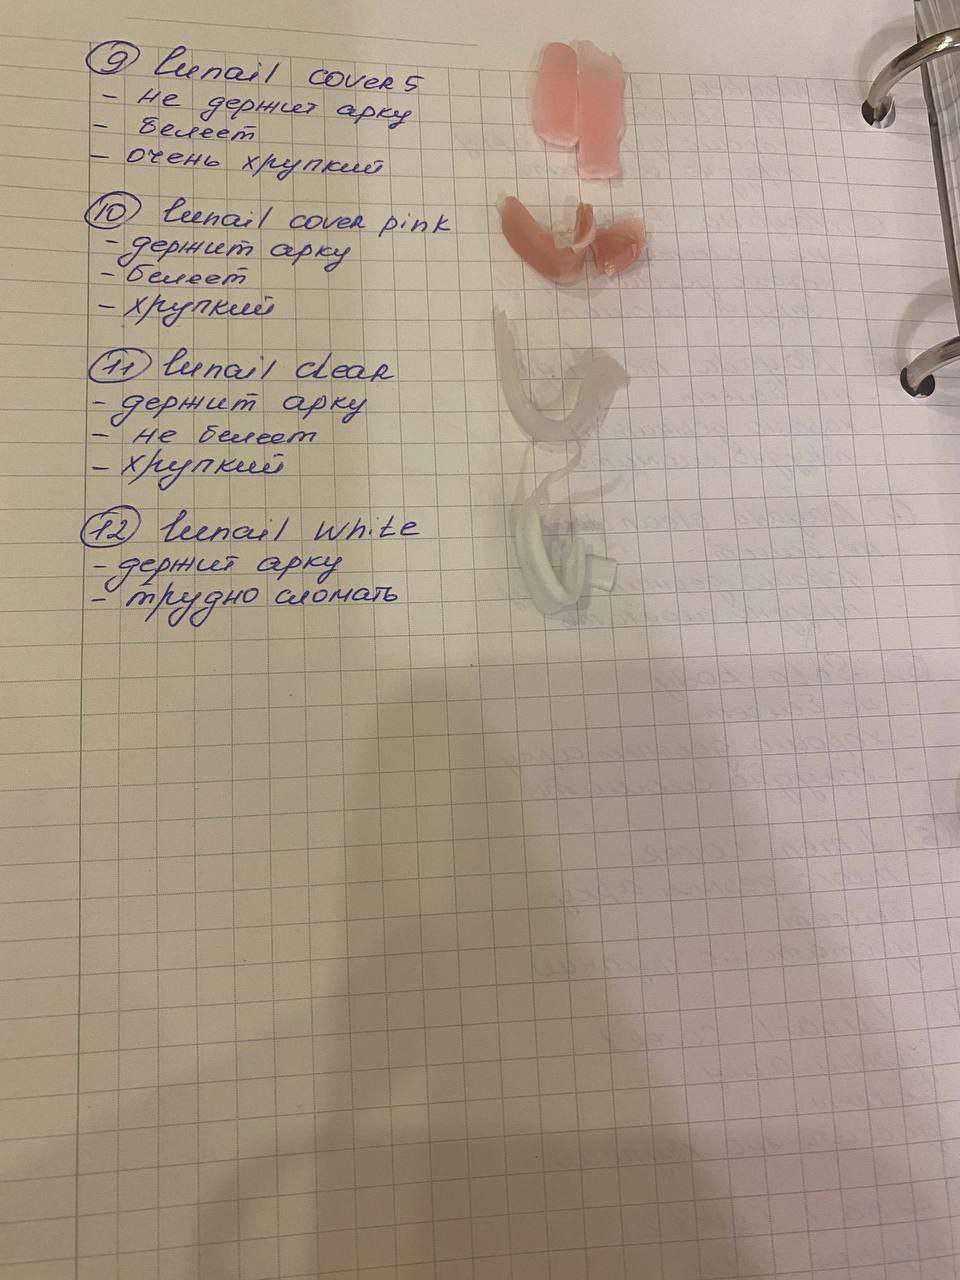 9 lunail cover 5
- не держит арку
- белеет
- очень хрупкий
10 lunail cover pink
- держит арку
- белеет
- хрупкий
11 lunail clear
- держит арку
- не белеет
- хрупкий
12 lunail white
- держит арку
- трудно сломать